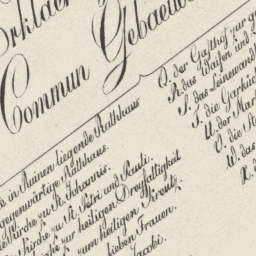 Erklaer
Commun Gebaeude
in Ruinen liegende Rathhaus
gegenwärtige Rathhaus.
Kirche zu St. Johannis.
Kirche zu St. Petri und Pauli.
zur heiligen Dreyfaltigkeit
zum heiligen Kreutz.
lieben Frauen.
Jacobi.
Q. der Gasthof zur g
R. das Waisen und Z
S. das Leinwand
T. die Garküch
U. der Mar
V. die St
W. das
X. d